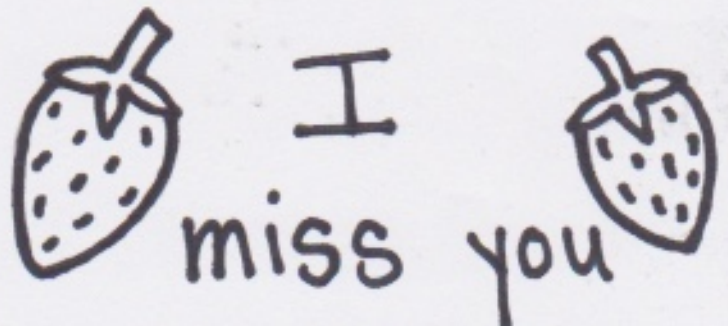 I
miss you